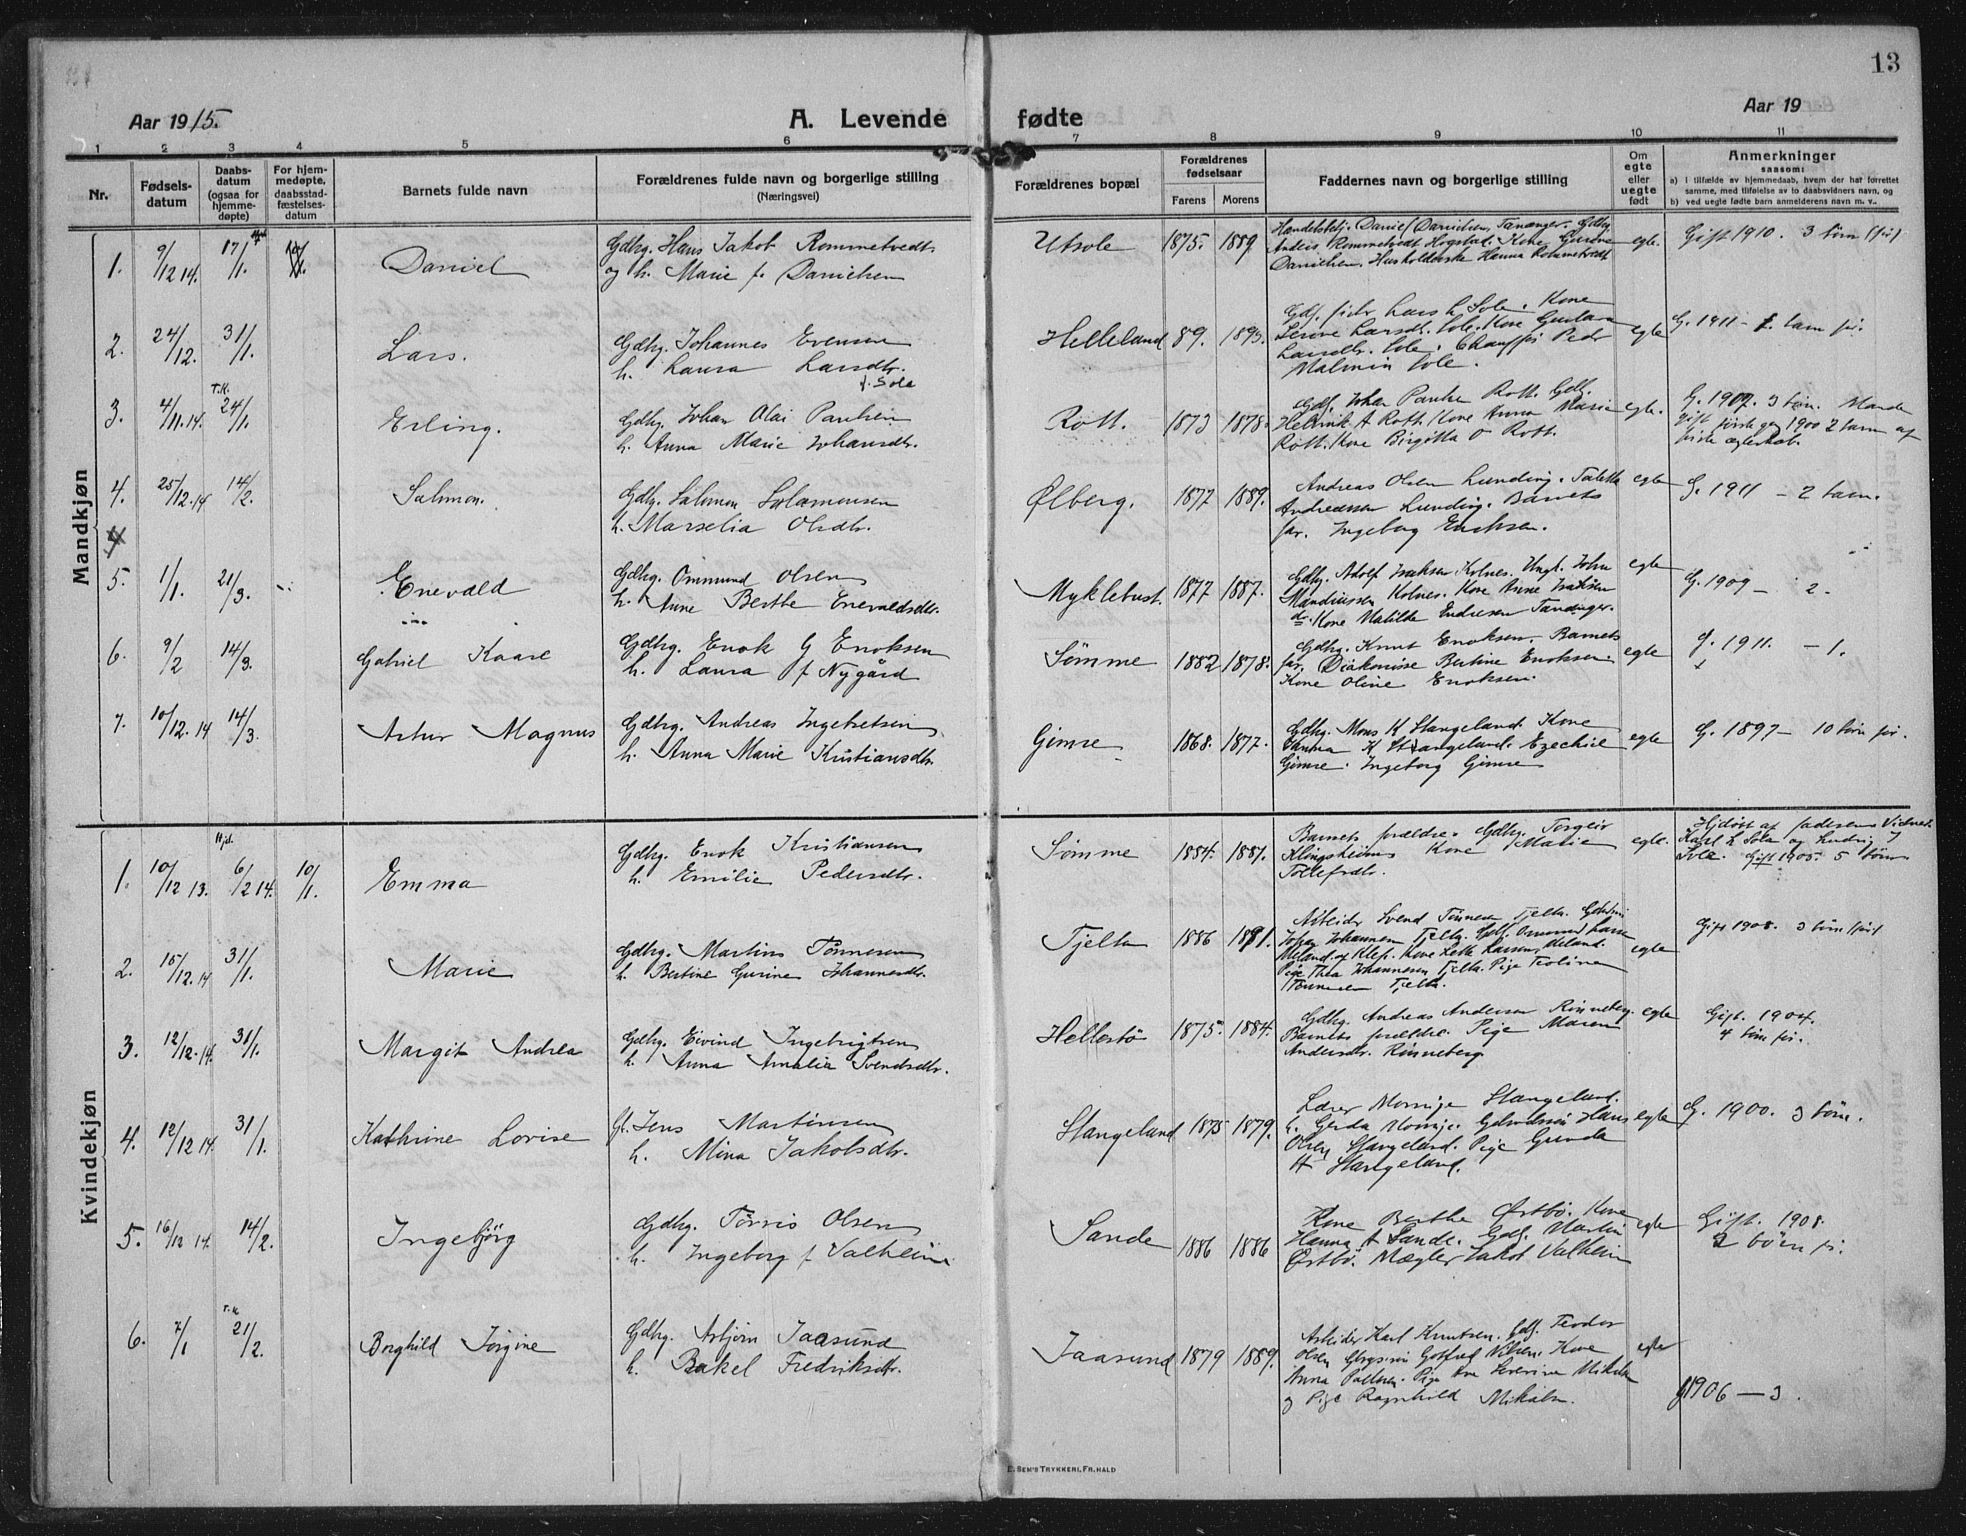 13
Aar 1915.
A. Levende fødte
Aar 19
1 2 3 4 5 6 7 8 9 10 11
Nr.
Fødsels-
datum
Daabs-
datum
(ogsaa for
hjemme-
døpte)
For hjem-
medøpte,
daabsstad-
fæstelses-
datum
Barnets fulde navn
Forældrenes fulde navn og borgerlige stilling
(Næringsvei)
Forældrenes bopæl
Forældrenes
fødselsaar
Farens Morens
Faddernes navn og borgerlige stilling
Om
egte
eller
uegte
født
Anmerkninger
saasom:
a) i tilfælde av hjemmedaab, hvem der har forrettet
samme, med tilføielse av to daabsvidners navn, og
b) ved uegte fødte barn anmelderens navn m. v..
Mandkjøn
1. 9/12 14. 17/1. Daniel
Gdbg. Hans Jakob Rommetvedt
og h. Marie f. Danielsen
Utsole 1875. 1889
Handelsbetj. Daniel Danielsen, Tananger. Gdbg
Rommetvedt Hogstad. Kone Gurine
Danielsen. Husholderske Hanna Rommetvedt
egte. Gift 1910. 3 børn før
2. 24/12. 31/1. Lars.
Gdbg. Johannes Evensen
h. Laura Larsdtr.
f. Sole
Helleland 89. 1893.
Lars L Sole. Kone
Serine Larsdt. Sole. Kone Gustava
Larsdtr. Sole. Chauffør Peder
Malmin Sole.
egte G. 1911 – 1. barn før.
3. 4/11.14. T.K. 24/1. Erling.
Gdbg. Johan Olai Paulsen
h. Anna Marie Johansdtr.
Rott. 1873 1878.
Gdf. Johan Paulsen Rott. Gdf.
Henrik A Rott. Kone Anna Marie
Rott. Kone Birgitta O Rott.
egte. G. 1907. 3 børn. Mande
gift første gang 1900 2 barn af
første ægteskab.
4. 25/12.14 14/2. Salmon.
Gdbg. Salomon Salamonsen
h. Marselia Olsdtr.
Ølberg. 1877 1889.
Andreas Olsen Lunding. Tabitha
Andreassen Lunding. Barnets
far. Ingeborg Eriksen.
egte G. 1911 – 2 barn.
5. 1/1. 21/3. Enevald
Gdbg. Ommund Olsen
h. Anne Berthe Enevaldsdtr.
Myklebust. 1877 1887.
Gdbg. Adolf Isaksen Kolnes. Ungk. John
Mandiussen Kolnes. Kone Anne Isaksen
do. Kone Matilde Endresen Tananger.
egte G. 1909 – 2.
6. 9/2 14/3. Gabriel Kaare
Gdbg. Enok G Enoksen
h. Laura f Nygård
Sømme 1882 1878.
Gdbg. Knut Enoksen. Barnets
far. Diakonisse Bertine Enoksen.
Kone Oline Enoksen.
egte G. 1911. – 1.
7. 10/12.14 14/3. Artur Magnus
Gdbg. Andreas Ingebretsen
h. Anna Marie Kristiansdtr.
Gimre 1868. 1877.
Gdbg. Mons K Stangeland. Kone
K Stangeland. Ezechiel
Gimre. Ingeborg Gimre
egte G. 1897 – 10 børn før.
Kvindekjøn
1. 10/12 13. Hjd. 6/2 14. 10/1. Emma
Gdbg. Enok Kristiansen
h. Emilie Pedersdtr.
Sømme 1884. 1881.
Barnets forældre. Gdbg. Torgeir
Klingsheim Kone Marie
Tollefsdtr.
egte. Hjdøpt af faderen Vidner
Karl L Sola og Ludvig J
Sole. Gift 1905. 5 børn
2. 15/12.14 31/1. Marie
Gdbg. Martin Tønnesen
h. Bertine Gurine Johannesdtr.
Tjelta 1886 1891.
Arbeider Svend Tønnesen Tjelta.
Johan Johannesen Tjelta. Gdf. Ommund Larsen
Meland af Klep. Kone Lette Larsen Meland.
Pige Thea Johannesen Tjelta. Pige Teoline
Tønnesen Tjelta.
egte Gift 1908. 3 børn før
3. 12/12.14. 31/1. Margit Andrea
Gdbg. Eivind Ingebrigtsen
h. Anna Amalie Svendsdtr.
Hellestö 1875. 1884.
Gdbg. Andreas Andersen Rinneberg.
Barnets forældre. Pige Maren
Andersdtr. Rinneberg
egte Gift. 1904.
4 børn før.
4. 12/12 14. 31/1. Kathrine Lovise
Jens Martinsen
h. Mina Jakobsdtr.
Stangeland 1875 1879.
Lærer Monsige Stangeland.
h. Gerda Monsige. Gdmdssøn Hans
Olsen Stangeland. Pige Gunda
H Stangeland.
egte G. 1900. 3 børn.
5. 16/12 14. 14/2. Ingebjörg
Gdbg. Tørris Olsen
h. Ingeborg f Valheim
Sande 1886 1886
Kone Berthe Østbö. Kone
Hanna A Sande. Gdf. Martin
Østbö. Mægler Jakob Valheim
egte Gift. 1908.
2 börn før.
6. 7/1 T.K. 21/2. Borghild Jörgine
Gdbg. Asbjörn Jaasund
h. Rakel Fredriksdtr.
Jaasund 1879 1889.
Arbeider Karl Knutsen. Gdf. Teodor
Olsen Gotfred Nilsen. Kone
Anna Paulsen. Pige Severine Mikalsen
og Pige Ragnhild Mikalsen.
egte
g 1906 – 3.
E. SEM'S TRYKKERI, FR.HALD